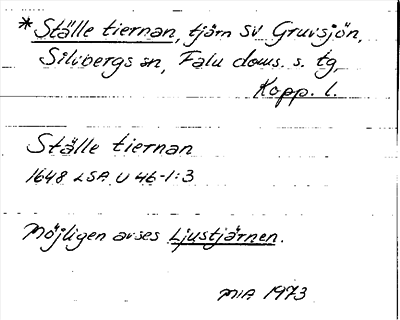 *Ställe tiernan, tjärn SV Gruvsjön,
Silvbergs sn, Falu doms. s. tg,
Kopp. l.
Ställe tiernan
1648 LSA U 46-1:3
Möjligen avses Ljustjärnen.
MIA 1973